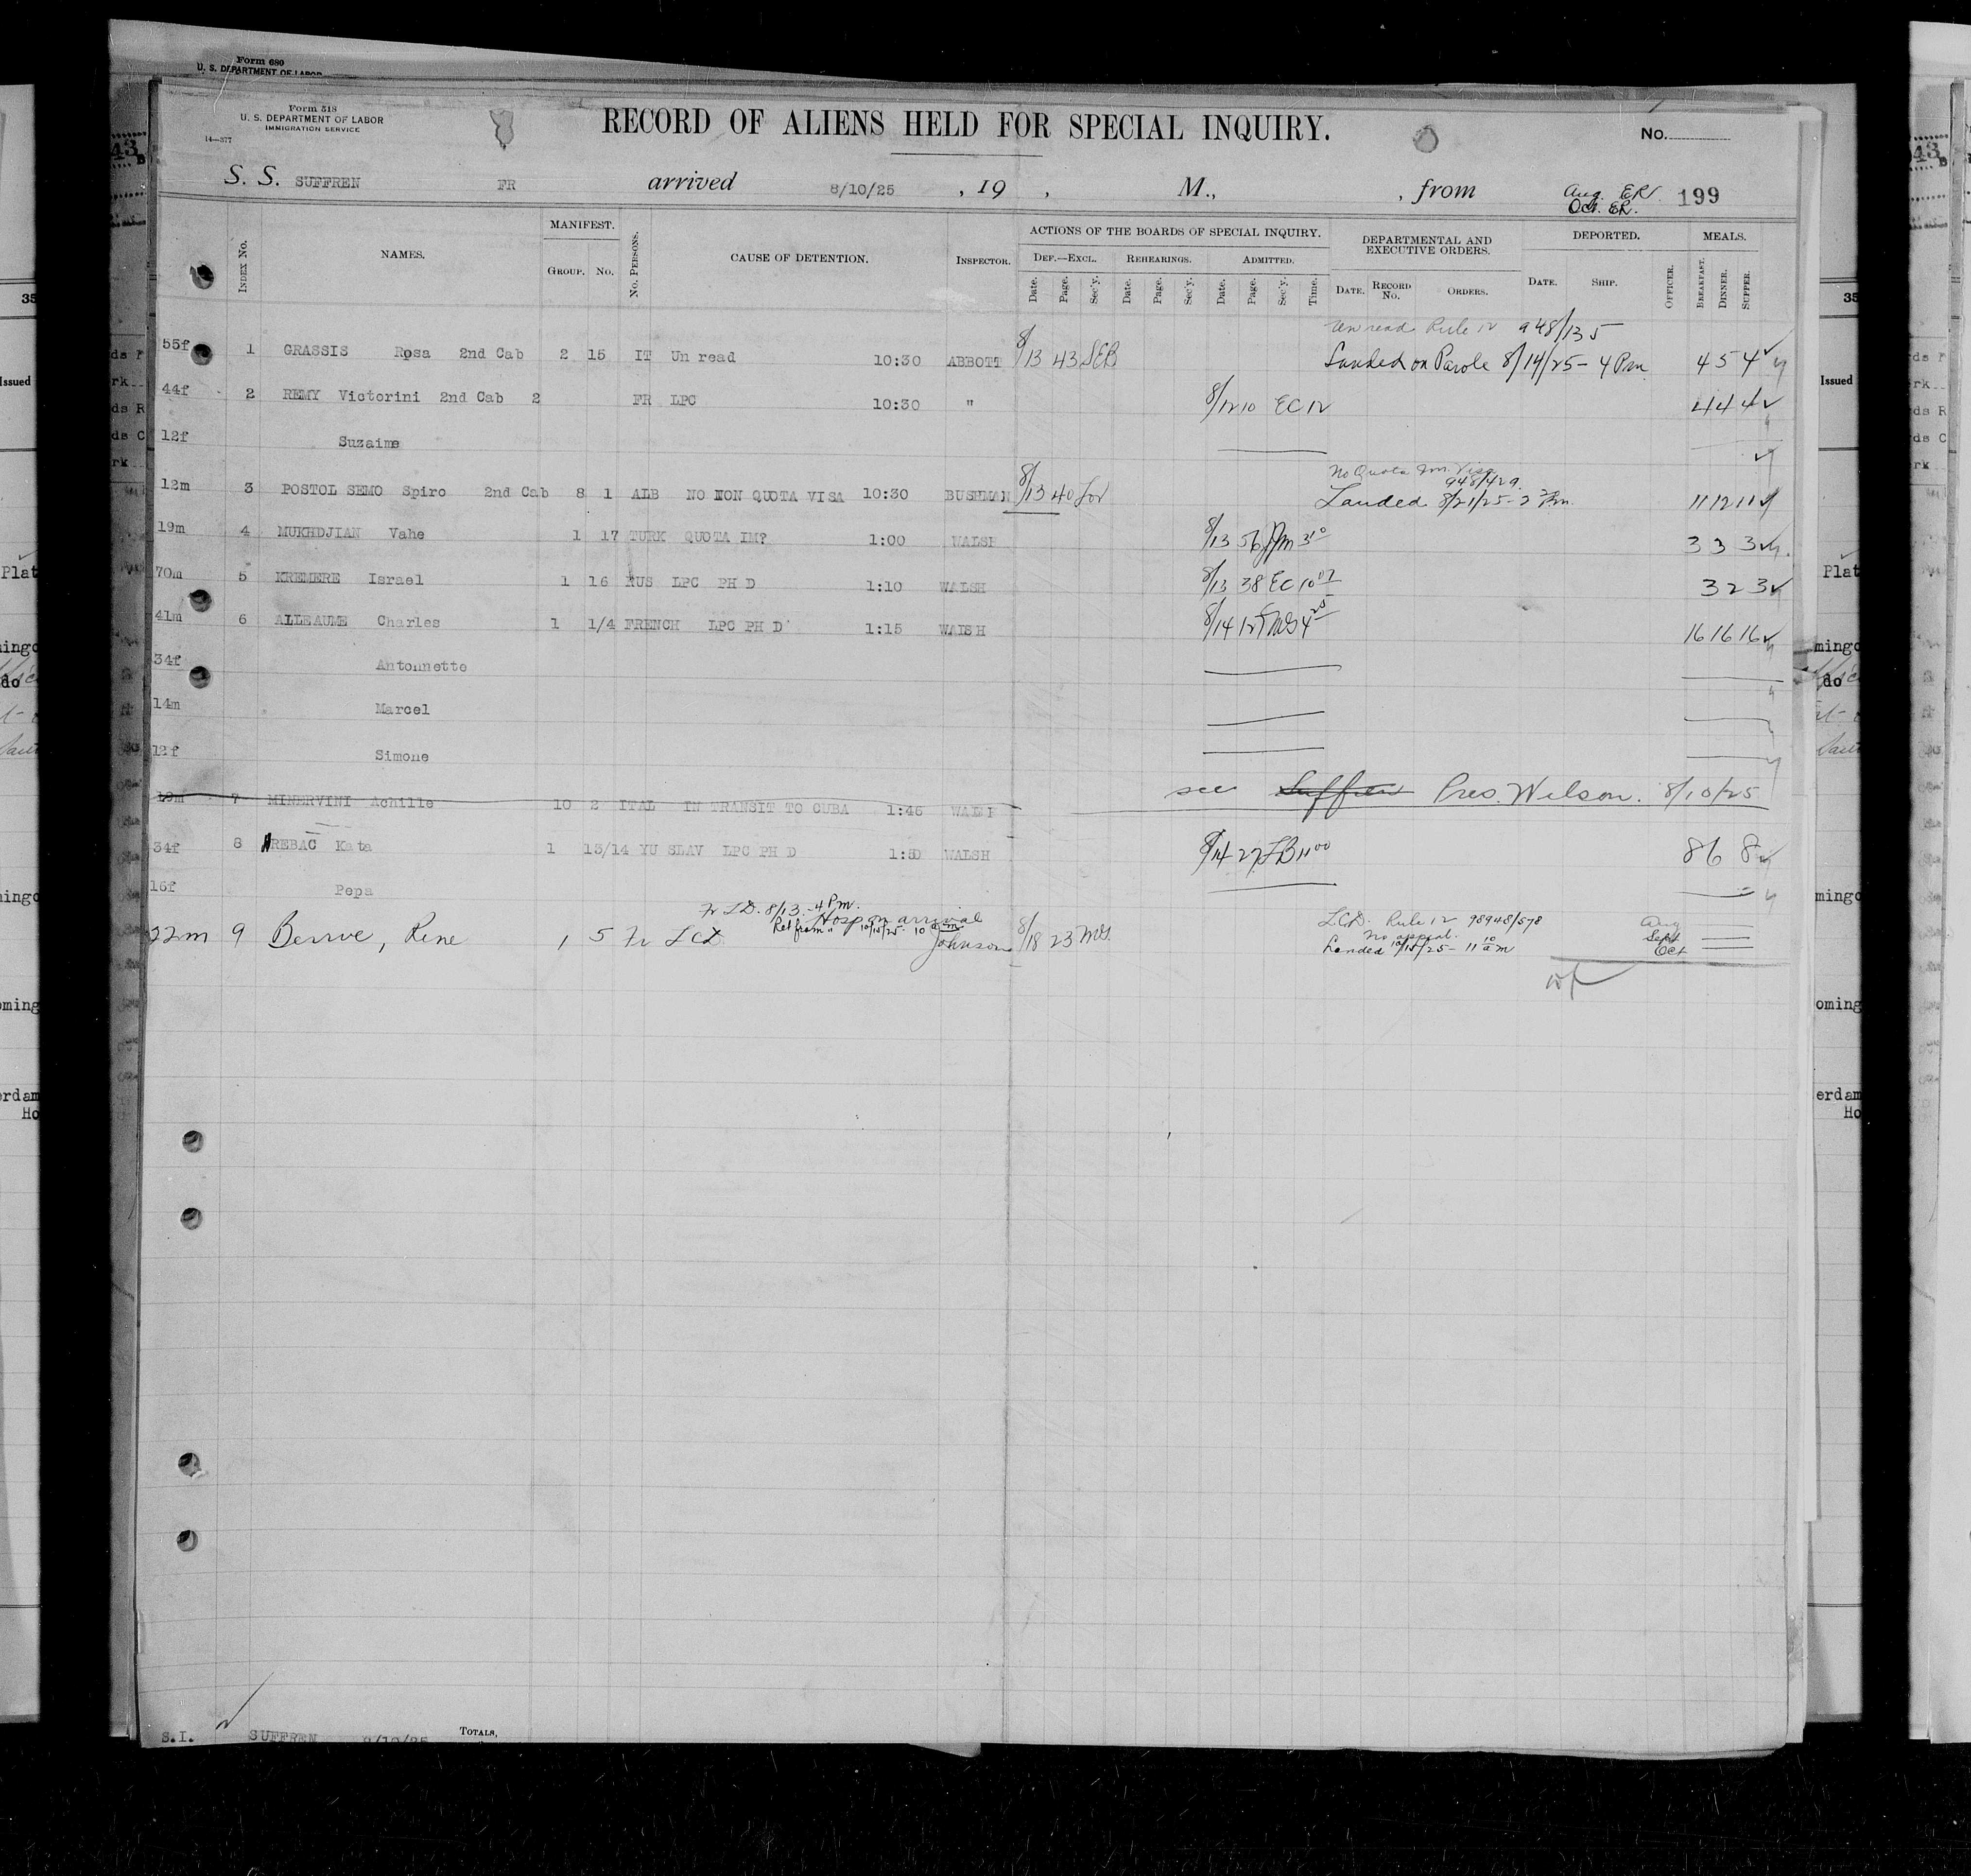 Form 680
U. S. DEPARTMENT OF LABOR
Form 518
U. S. DEPARTMENT OF LABOR
IMMIGRATION SERVICE
14—577
RECORD OF ALIENS HELD FOR SPECIAL INQUIRY.
No.
S. S. SUFFREN FR arrived 8/10/25 , 19 , M., , from Aug. ER 199
Oct. ER.
INDEX No. NAMES. MANIFEST. GROUP. No. No. PERSONS. CAUSE OF DETENTION. INSPECTOR. ACTIONS OF THE BOARDS OF SPECIAL INQUIRY. DEF.—EXCL. REHEARINGS. ADMITTED. DEPARTMENTAL AND EXECUTIVE ORDERS. DEPORTED. MEALS.
Date. Page. Sec'y. Date. Page. Sec'y. Date. Page. Sec'y. Time. DATE. RECORD No. ORDERS. DATE. SHIP. OFFICER. BREAKFAST. DINNER. SUPPER.
Un read Rule 12 948/135
55f 1 GRASSIS Rosa 2nd Cab 2 15 IT Un read 10:30 ABBOTT 8/13 43 SEB Landed on Parole 8/14/25 - 4 Pm 4 5 4
44f 2 REMY Victorini 2nd Cab 2 FR LPC 10:30 " 8/12 10 EC 12 4 4 4
12f Suzaime
No Quota Im. Visa
948/429
12m 3 POSTOL SEMO Spiro 2nd Cab 8 1 ALB NO NON QUOTA VISA 10:30 BUSHMAN 8/13 40 Landed 8/21/25 - 2 Pm. 11 12 11
19m 4 MUKHDJIAN Vahe 1 17 TURK QUOTA IM? 1:00 WALSH 8/13 56 3 10 3 3 3
70m 5 KREMERE Israel 1 16 RUS LPC PH D 1:10 WALSH 8/13 38 EC 10 17 3 2 3
41m 6 ALLEAUME Charles 1 1/4 FRENCH LPC PH D 1:15 WALSH 8/14 12 MG 4 25 16 16 16
34f Antonnette
14m Marcel
12f Simone
19m 7 MINERVINI Achille 10 2 ITAL IN TRANSIT TO CUBA 1:45 WALSH see Suffren Pres. Wilson. 8/10/25
34f 8 HREBAC Kata 1 13/14 YU SLAV LPC PH D 1:50 WALSH 8/14 27 LB 11 00 8 6 8
16f Pepa
Fr LD. 8/13 - 4 Pm.
Hosp on arrival
Ret from " 10/15/25 - 10 am
22m 9 Berrve, Rene 1 5 Fr LCD Johnson 8/18 23 MG. LCD. Rule 12 98948/578
No appeal.
Landed 10/15/25 - 11 10 am
Aug
Sept
Oct
S.I. SUFFREN 8/10/25 TOTALS,